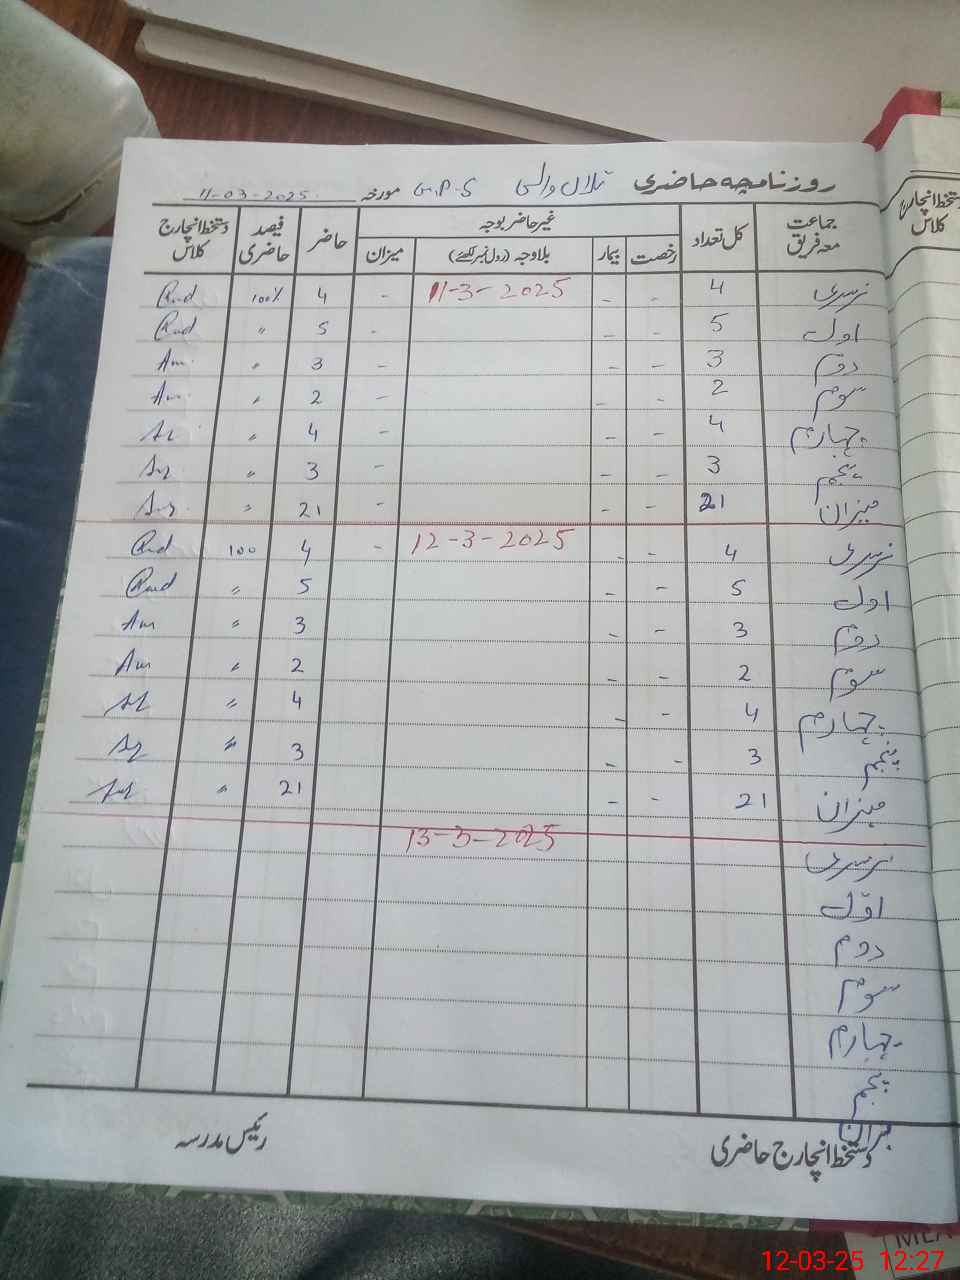 روزنامچہ حاضری G.P.S تلاں والی مورخہ 11-03-2025
جماعت معہ فریق کل تعداد غیر حاضر بوجہ حاضر فیصد حاضری دستخط انچارج کلاس
رخصت بیمار بلاوجہ (رول نمبر لکھئے) میزان
نرسری 4 - - 11-3-2025 - 4 100%
اول 5 - - - 5 "
دوم 3 - - - 3 "
سوم 2 - - - 2 "
چہارم 4 - - - 4 "
پنجم 3 - - - 3 "
میزان 21 - - - 21 "
نرسری 4 - - 12-3-2025 - 4 100
اول 5 - - 5 "
دوم 3 - - 3 "
سوم 2 - - 2 "
چہارم 4 - - 4 "
پنجم 3 - - 3 "
میزان 21 - - 21 "
13-3-2025
نرسری
اول
دوم
سوم
چہارم
پنجم
میزان
دستخط انچارج حاضری رئیس مدرسہ
دستخط انچارج کلاس
12-03-25 12:27